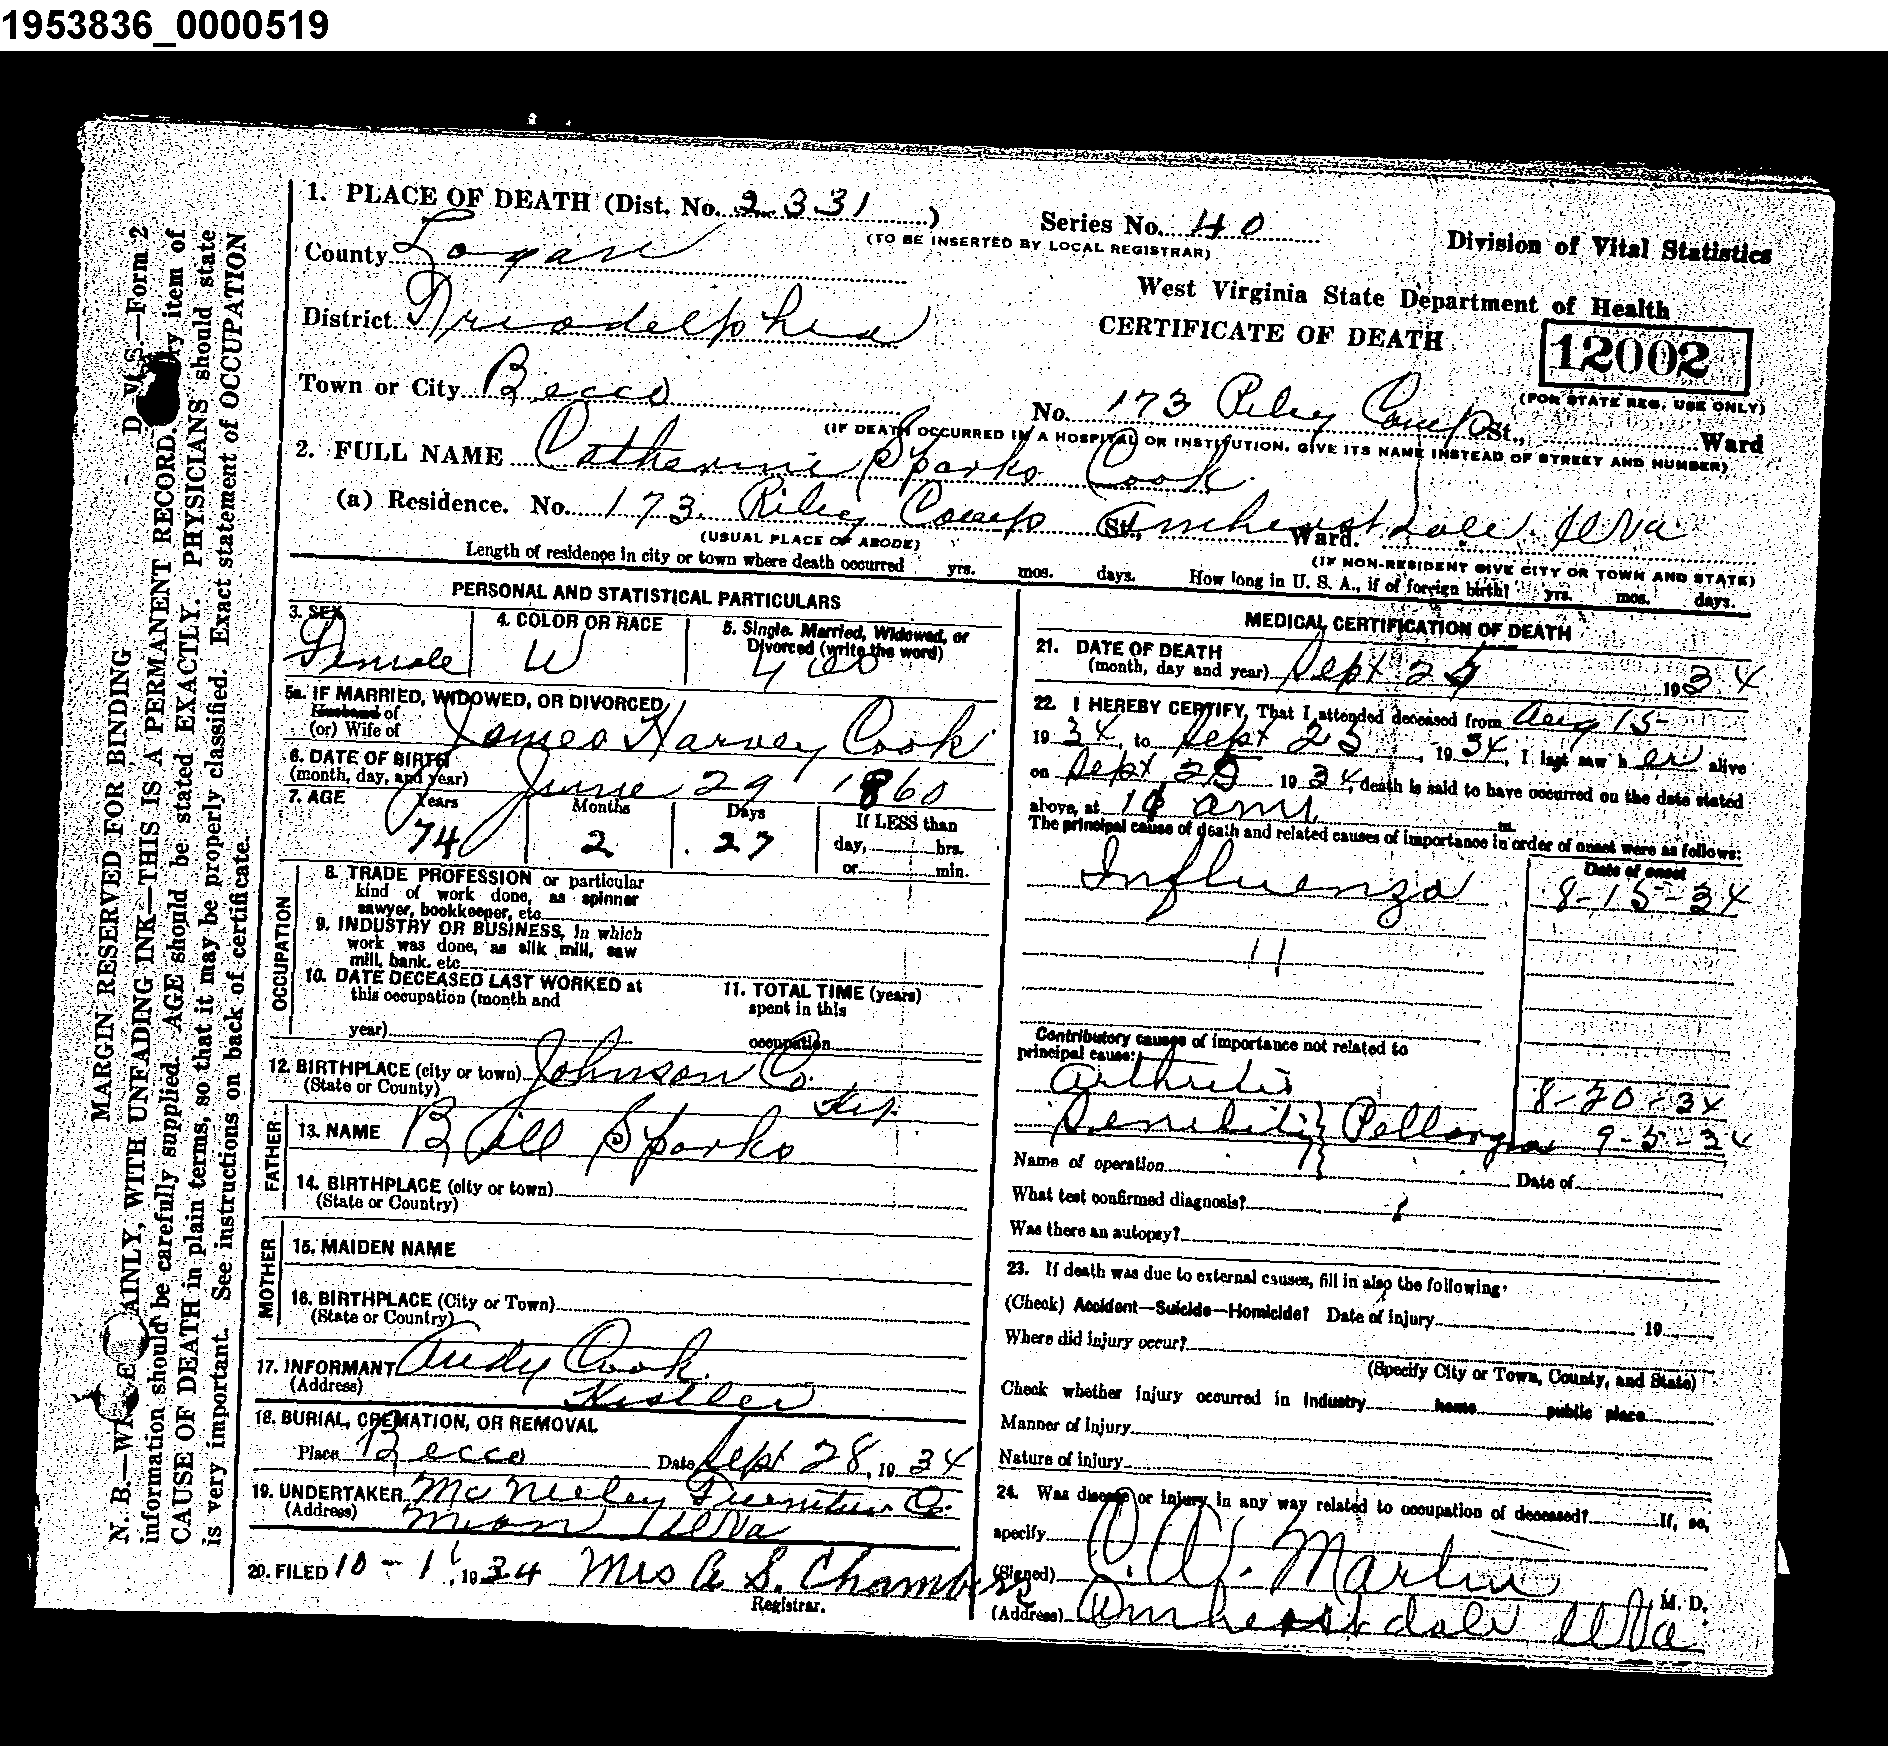 1953836_0000519
1. PLACE OF DEATH (Dist. No. 2331)
Series No. 40
(TO BE INSERTED BY LOCAL REGISTRAR)
Division of Vital Statistics
County Logan
West Virginia State Department of Health
District Triadelphia
CERTIFICATE OF DEATH
12002
(FOR STATE REG. USE ONLY)
Town or City Becco
No. 173 Riley Camp St., Ward
(IF DEATH OCCURRED IN A HOSPITAL OR INSTITUTION, GIVE ITS NAME INSTEAD OF STREET AND NUMBER)
2. FULL NAME Catherine Sparks Cook
(a) Residence. No. 173 Riley Camp St., Amherstdale Ward. W Va
(USUAL PLACE OF ABODE)
(IF NON-RESIDENT GIVE CITY OR TOWN AND STATE)
Length of residence in city or town where death occurred yrs. mos. days. How long in U. S. A., if of foreign birth? yrs. mos. days.
PERSONAL AND STATISTICAL PARTICULARS
3. SEX
Female
4. COLOR OR RACE
W
5. Single, Married, Widowed, or
Divorced (write the word)
5a. IF MARRIED, WIDOWED, OR DIVORCED
Husband of
(or) Wife of James Harvey Cook
6. DATE OF BIRTH
(month, day, and year) June 29 1860
7. AGE Years Months Days If LESS than
74 2 27 day, hrs.
or min.
OCCUPATION
8. TRADE PROFESSION or particular
kind of work done, as spinner
sawyer, bookkeeper, etc
9. INDUSTRY OR BUSINESS, in which
work was done, as silk mill, saw
mill, bank, etc
10. DATE DECEASED LAST WORKED at
this occupation (month and
year)
11. TOTAL TIME (years)
spent in this
occupation
12. BIRTHPLACE (city or town) Johnson Co.
(State or County) Ky.
FATHER
13. NAME Bill Sparks
14. BIRTHPLACE (city or town)
(State or Country)
MOTHER
15. MAIDEN NAME
16. BIRTHPLACE (City or Town)
(State or Country)
17. INFORMANT Andy Cook
(Address) Kistler
18. BURIAL, CREMATION, OR REMOVAL
Place Becco Date Sept 28, 1934
19. UNDERTAKER McNeeley Furniture Co.
(Address) Man W Va
20. FILED 10-1, 1934 Mrs A S. Chambers
Registrar.
MEDICAL CERTIFICATION OF DEATH
21. DATE OF DEATH
(month, day and year) Sept 25 1934
22. I HEREBY CERTIFY, That I attended deceased from Aug 15
1934, to Sept 25, 1934, I last saw her alive
on Sept 25 1934, death is said to have occurred on the date stated
above, at 10 am m.
The principal cause of death and related causes of importance in order of onset were as follows:
Date of onset
Influenza 8-15-34
11
Contributory causes of importance not related to
principal cause:
Arthritis 8-20-34
Senility Pellargra 9-5-34
Name of operation Date of
What test confirmed diagnosis?
Was there an autopsy?
23. If death was due to external causes, fill in also the following:
(Check) Accident—Suicide—Homicide? Date of injury 19
Where did injury occur?
(Specify City or Town, County, and State)
Check whether injury occurred in industry home public place
Manner of injury
Nature of injury
24. Was disease or injury in any way related to occupation of deceased? If, so,
specify
(Signed) Martin M. D.
(Address) Amherstdale W Va
MARGIN RESERVED FOR BINDING
D. V. S.—Form 2
N. B.—WRITE PLAINLY, WITH UNFADING INK—THIS IS A PERMANENT RECORD. Every item of
information should be carefully supplied. AGE should be stated EXACTLY. PHYSICIANS should state
CAUSE OF DEATH in plain terms, so that it may be properly classified. Exact statement of OCCUPATION
is very important. See instructions on back of certificate.